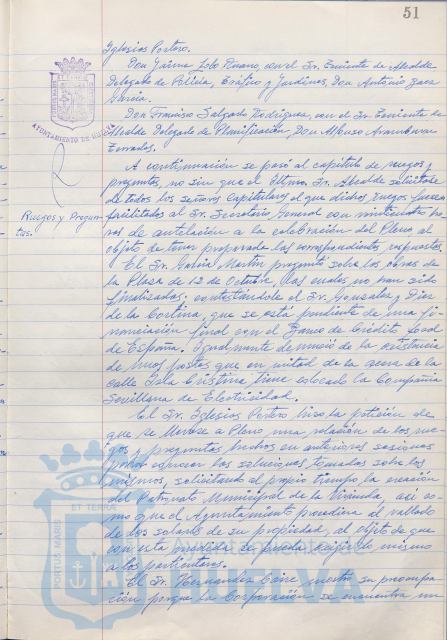 51
Iglesias Portero.
Don Jaime Lobo Ruano, con el Sr. Teniente de Alcalde
Delegado de Policía, Tráfico y Jardines, Don Antonio
García.
Don Francisco Salgado Rodríguez, con el Sr. Teniente de
Alcalde Delegado de Planificación, Don Alfonso Aramburu
Terrados.
AYUNTAMIENTO DE HUELVA
A continuación se pasó al capítulo de ruegos y
preguntas, no sin que el Iltmo. Sr. Alcalde solicitase
de todos los señores Capitulares el que dichos ruegos fuesen
facilitados al Sr. Secretario General con
de antelación a la celebración del Pleno, al
objeto de tener preparada las correspondientes respuestas.
Ruegos y Pregun-
tas.
El Sr. García Martín preguntó sobre las obras de
la Plaza de 12 de Octubre, las cuales no han sido
finalizadas; contestándole el Sr. González y Díaz
de la Cortina, que se está pendiente de una fi-
nanciación final con el Banco de Crédito Local
de España. Igualmente denunció de la existencia
de unos postes que en mitad de la acera de la
calle Isla Cristina, tiene colocado la Compañía
Sevillana de Electricidad.
El Sr. Iglesias Portero hizo la petición de
que se llevase a Pleno una relación de los rue-
gos y preguntas hechos en anteriores sesiones
para expresar las soluciones tomadas sobre los
mismos, solicitando al propio tiempo, la creación
del Patronato Municipal de la Vivienda, así co-
mo que el Ayuntamiento procediera al vallado
de los solares de su propiedad, al objeto de que
con esta medida se pueda exigir lo mismo
a los particulares.
El Sr. Hernández Cansino mostró su preocupa-
ción porque la Corporación se encuentra un
PORTUS MARIS
ET TERRAE